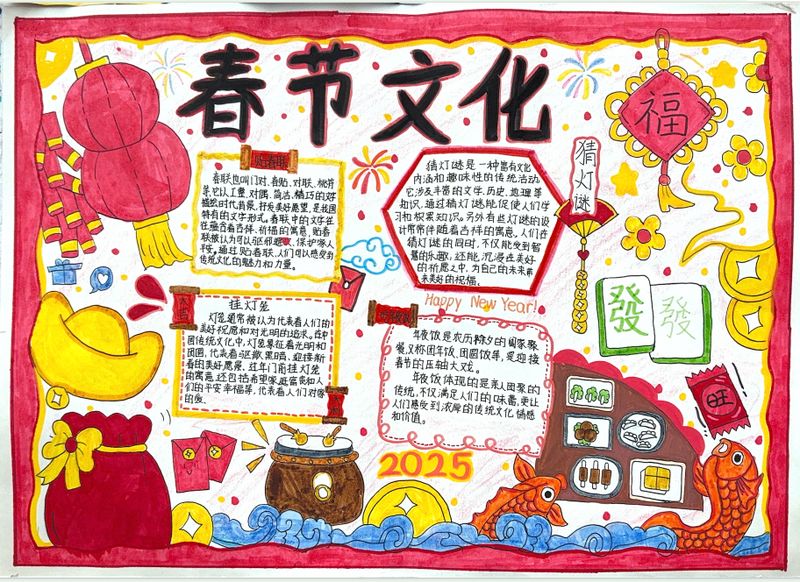 春节文化
贴春联
春联也叫门对、春贴、对联、桃符
等,它以工整、对偶、简洁、精巧的文字
描绘时代背景,抒发美好愿望,是我国
特有的文字形式。春联中的文字往
往蕴含着吉祥、祈福的寓意,贴春
联被认为可以驱邪避灾、保护家人
平安。通过贴春联,人们可以感受到
传统文化的魅力和力量。
猜灯谜是一种富有文化
内涵和趣味性的传统活动
它涉及丰富的文学、历史、地理等
知识。通过猜灯谜能促使人们学
习和积累知识。另外有些灯谜的设
计常常伴随着吉祥的寓意,人们在
猜灯谜的同时,不仅能感受到智
慧的乐趣,还能沉浸在美好
的祈愿之中,为自己的未来带
来美好的祝福。
猜灯谜
福
Happy New Year!
挂灯笼
灯笼通常被认为代表着人们的
美好祝愿和对光明的追求。在中
国传统文化中,灯笼象征着光明和
团圆,代表着驱散黑暗,迎接新
春的美好愿景。过年门前挂灯笼
的寓意,还包括希望家庭富贵和人
们的平安幸福等,代表着人们对家
的爱。
大吉
年夜饭是农历除夕的阖家聚
餐,又称团年饭、团圆饭等,是迎接
春节的压轴大戏。
年夜饭体现的是亲人团聚的
传统,不仅满足人们的味蕾,更让
人们感受到浓厚的传统文化情感
和价值。
發
發
旺
2025